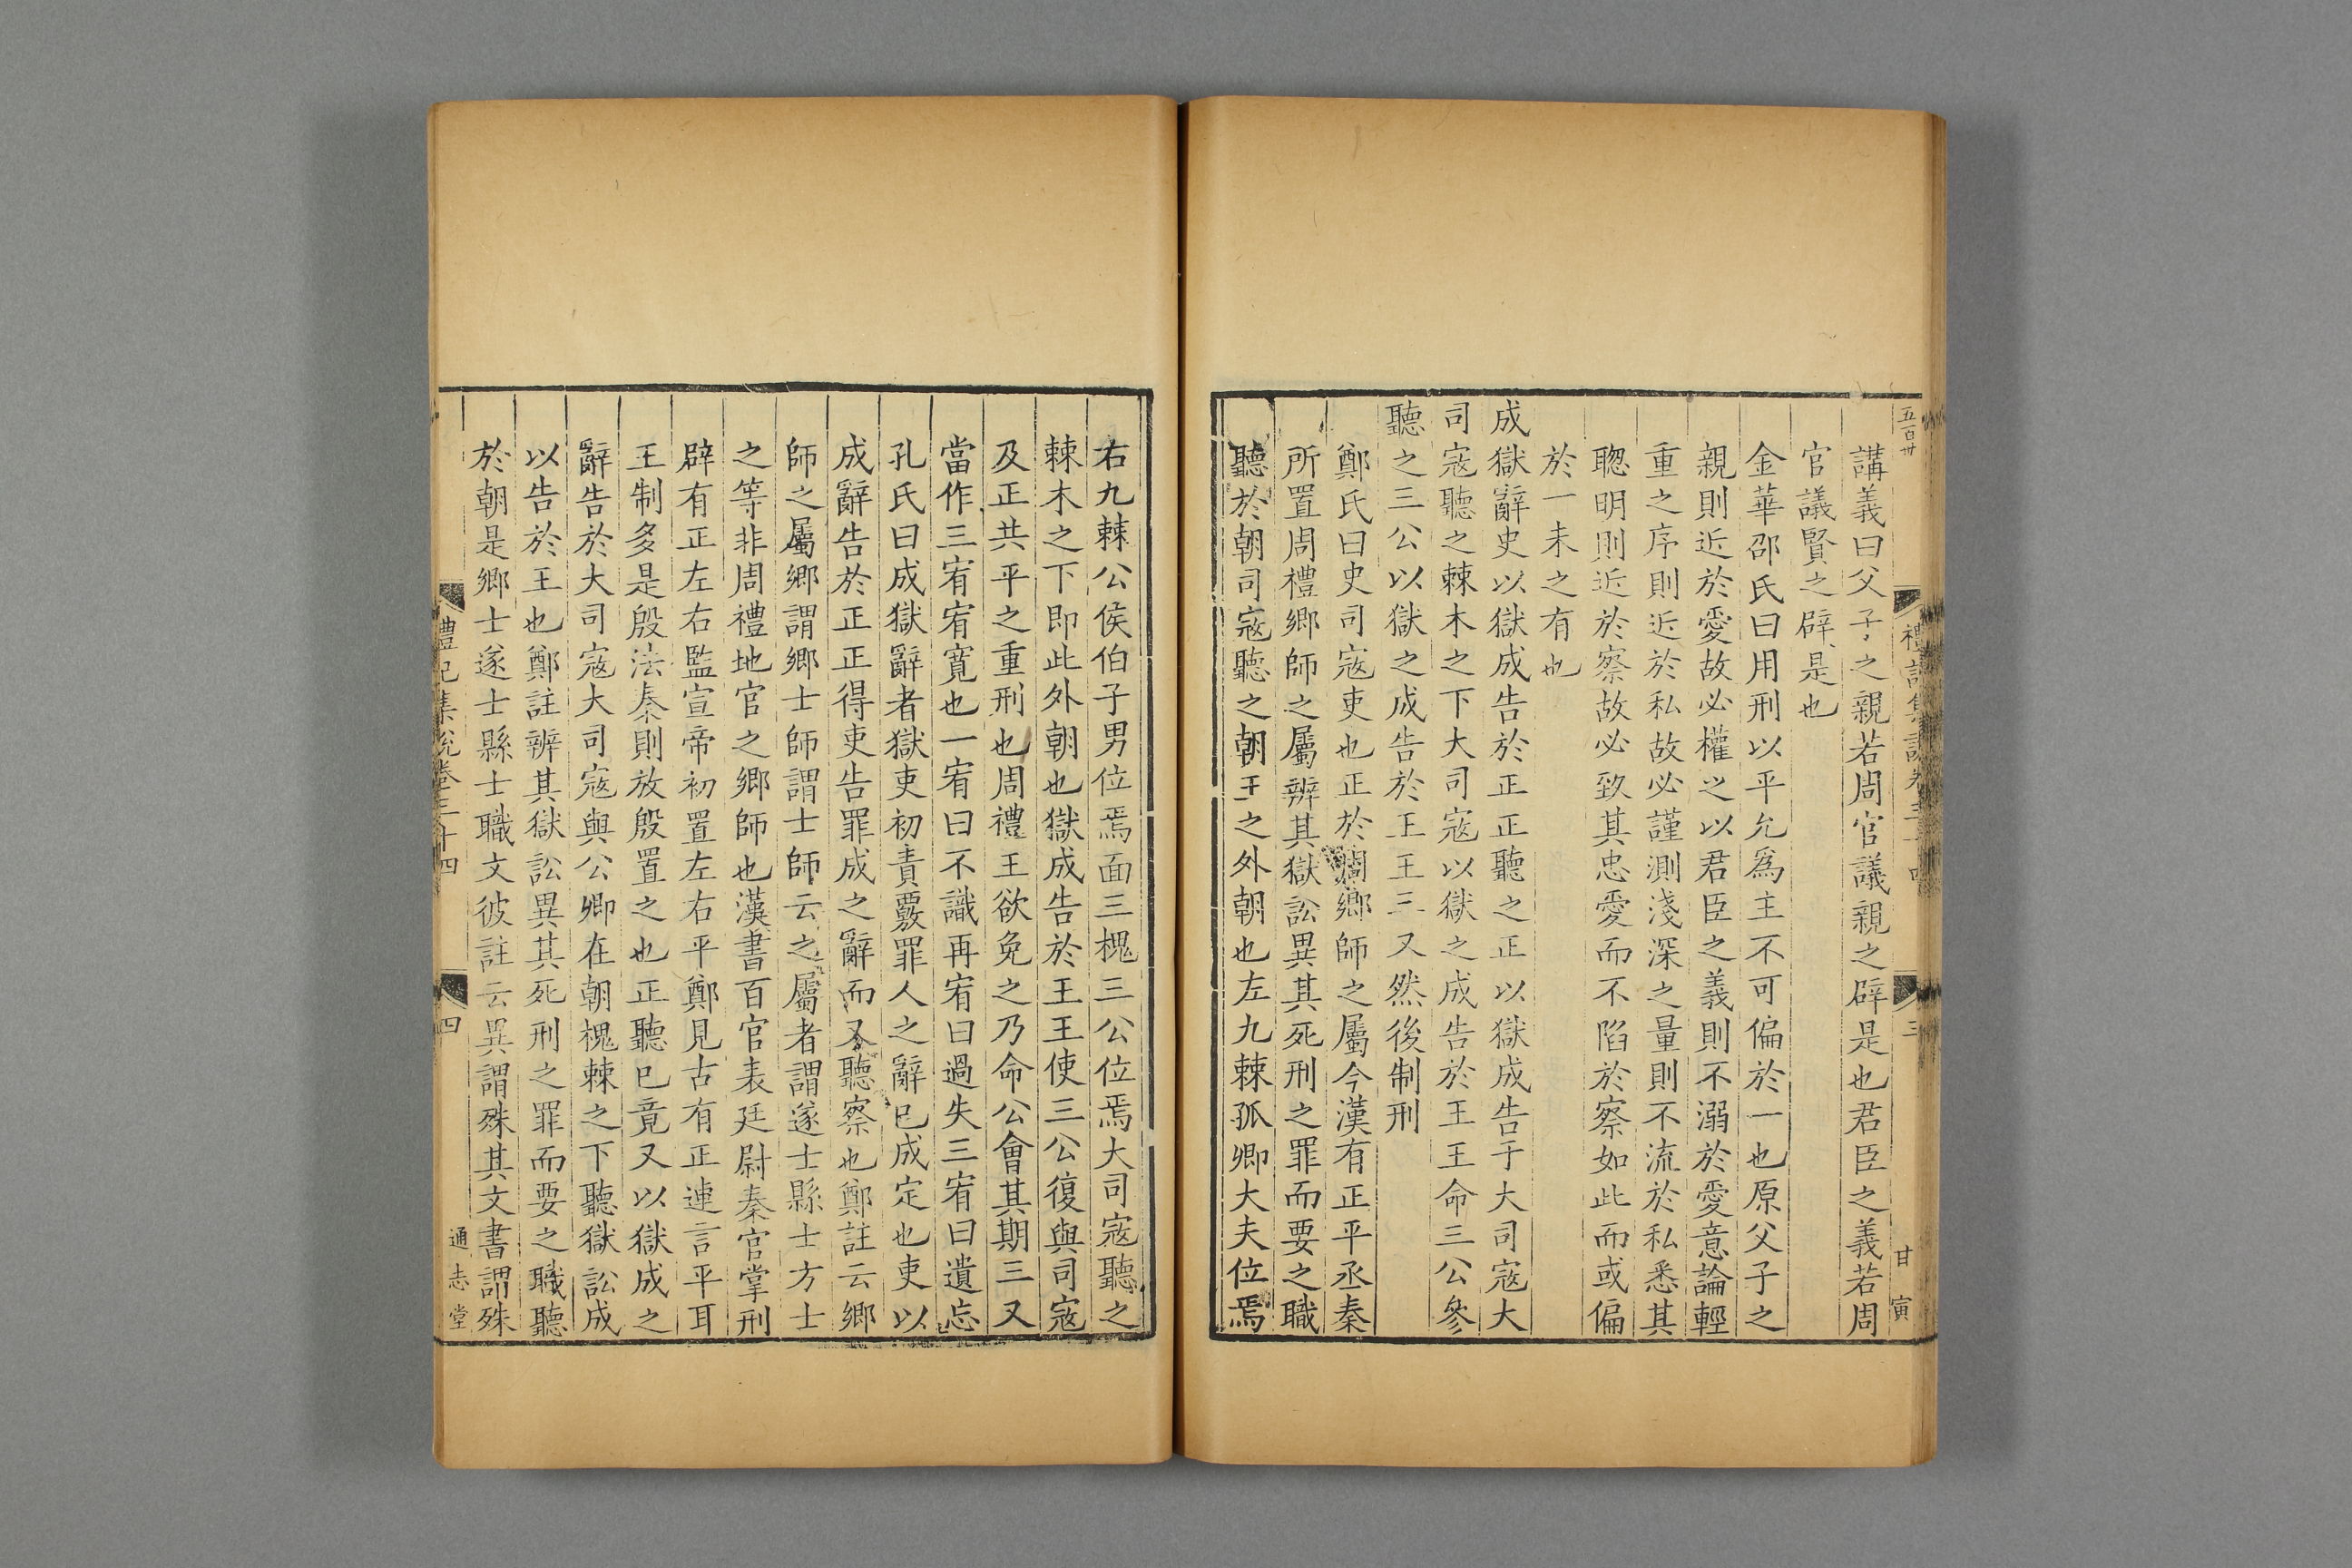 五百卅
禮記集說卷三十四
三
甘寅
講義曰父子之親若周官議親之辟是也君臣之義若周
官議賢之辟是也
金華邵氏曰用刑以平允爲主不可偏於一也原父子之
親則近於愛故必權之以君臣之義則不溺於愛意論輕
重之序則近於私故必謹測淺深之量則不流於私悉其
聰明則近於察故必致其忠愛而不陷於察如此而或偏
於一未之有也
成獄辭史以獄成告於正正聽之正以獄成告于大司寇大
司寇聽之棘木之下大司寇以獄之成告於王王命三公參
聽之三公以獄之成告於王王三又然後制刑
鄭氏曰史司寇吏也正於周鄉師之屬今漢有正平丞秦
所置周禮鄉師之屬辨其獄訟異其死刑之罪而要之職
聽於朝司寇聽之朝王之外朝也左九棘孤卿大夫位焉
右九棘公侯伯子男位焉面三槐三公位焉大司寇聽之
棘木之下即此外朝也獄成告於王王使三公復與司寇
及正共平之重刑也周禮王欲免之乃命公會其期三又
當作三宥宥寛也一宥曰不識再宥曰過失三宥曰遺忘
孔氏曰成獄辭者獄吏初責覈罪人之辭已成定也吏以
成辭告於正正得吏告罪成之辭而又聽察也鄭註云鄉
師之屬鄉謂鄉士師謂士師云之屬者謂遂士縣士方士
之等非周禮地官之鄉師也漢書百官表廷尉秦官掌刑
辟有正左右監宣帝初置左右平鄭見古有正連言平耳
王制多是殷法秦則放殷置之也正聽已竟又以獄成之
辭告於大司寇大司寇與公卿在朝槐棘之下聽獄訟成
以告於王也鄭註辨其獄訟異其死刑之罪而要之職聽
於朝是鄉士遂士縣士職文彼註云異謂殊其文書謂殊
禮記集說卷三十四
四
通志堂